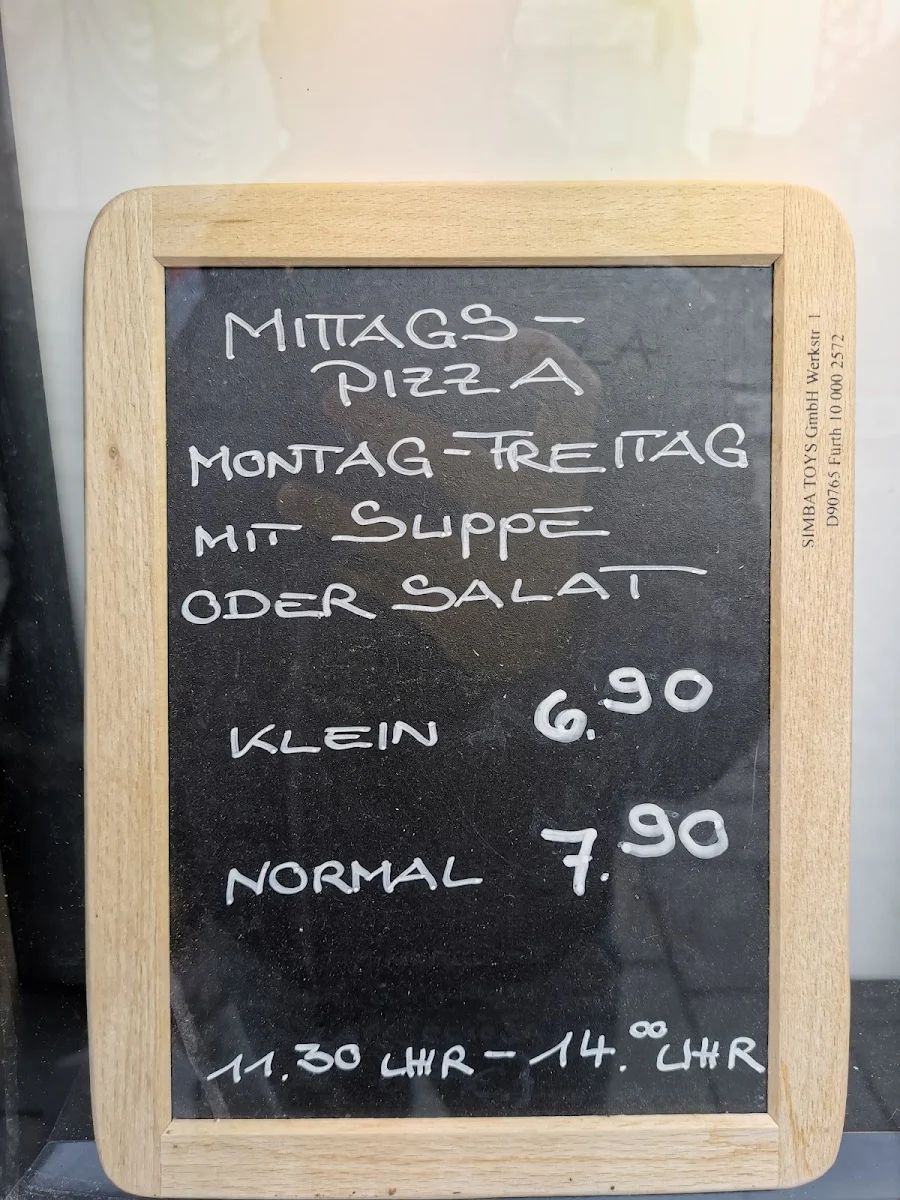 MITTAGS-
PIZZA
MONTAG-FREITAG
MIT SUPPE
ODER SALAT
KLEIN 6.90
NORMAL 7.90
11.30 UHR - 14.00 UHR
SIMBA TOYS GmbH Werkstr 1
D90765 Furth 10 000 2572